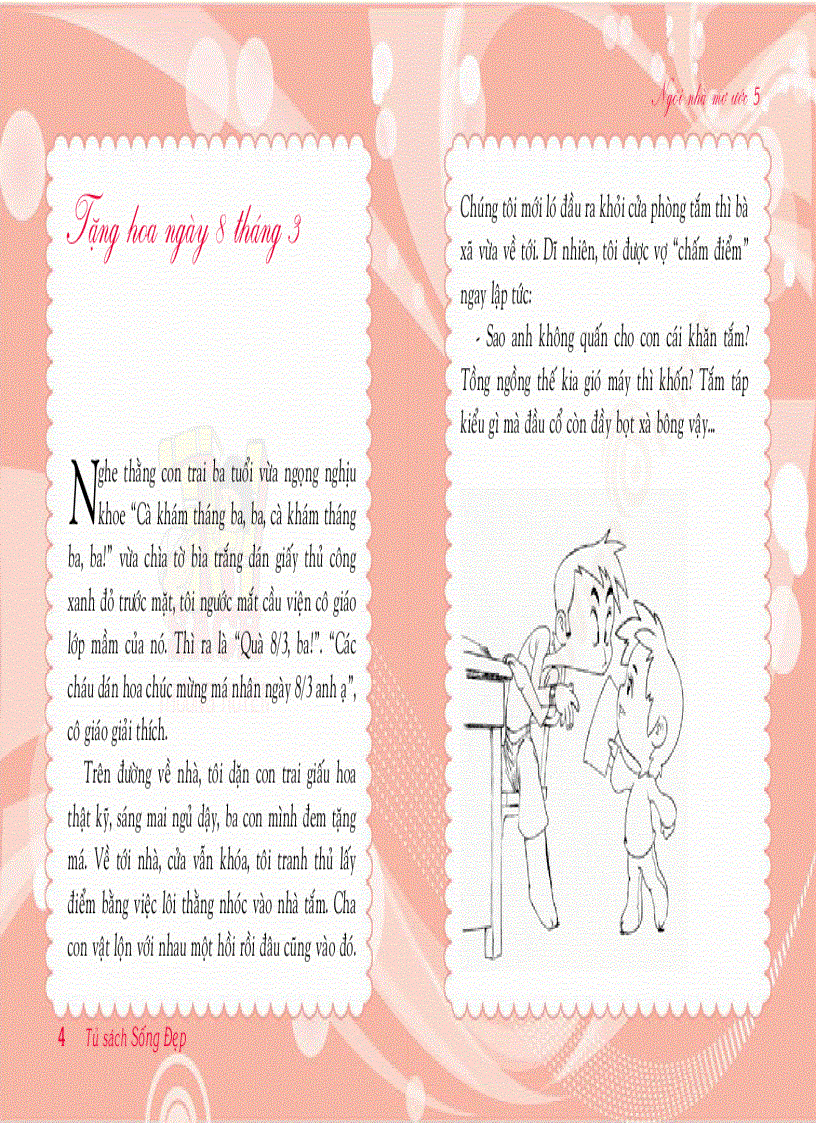 Tặng hoa ngày 8 tháng 3
Nghe thằng con trai ba tuổi vừa ngọng nghịu
khoe “Cà khám tháng ba, ba, cà khám tháng
ba, ba!” vừa chìa tờ bìa trắng dán giấy thủ công
xanh đỏ trước mặt, tôi ngước mắt cầu viện cô giáo
lớp mầm của nó. Thì ra là “Quà 8/3, ba!”. “Các
cháu dán hoa chúc mừng má nhân ngày 8/3 anh ạ”,
cô giáo giải thích.
Trên đường về nhà, tôi dặn con trai giấu hoa
thật kỹ, sáng mai ngủ dậy, ba con mình đem tặng
má. Về tới nhà, cửa vẫn khóa, tôi tranh thủ lấy
điểm bằng việc lôi thằng nhóc vào nhà tắm. Cha
con vật lộn với nhau một hồi rồi đâu cũng vào đó.
4 Tủ sách Sống Đẹp
Ngôi nhà mơ ước 5
Chúng tôi mới ló đầu ra khỏi cửa phòng tắm thì bà
xã vừa về tới. Dĩ nhiên, tôi được vợ “chấm điểm”
ngay lập tức:
- Sao anh không quấn cho con cái khăn tắm?
Tồng ngồng thế kia gió máy thì khốn? Tắm táp
kiểu gì mà đầu cổ còn đầy bọt xà bông vậy...